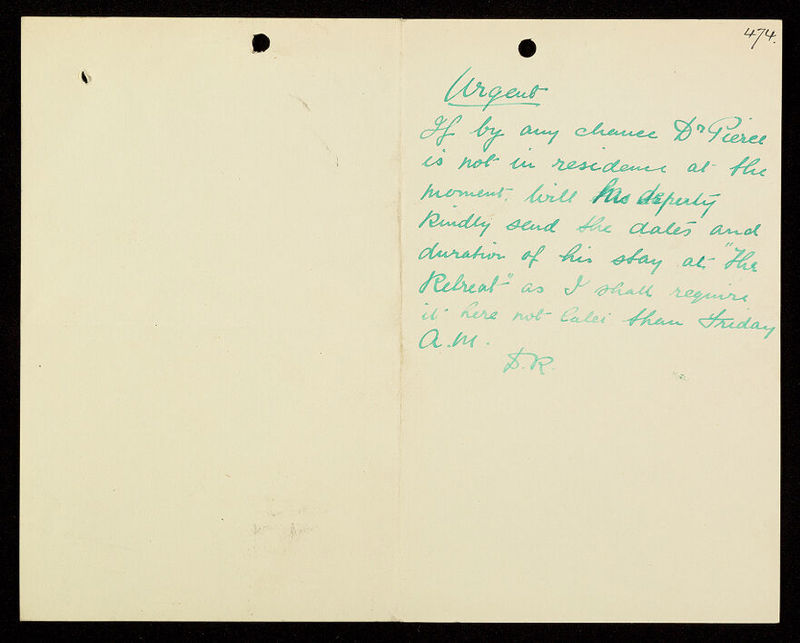 474.
Urgent
If by any chance Dr Pierce
is not in residence at the
moment, will his deputy
kindly send the dates and
duration of his stay at "The
Retreat" as I shall require
it here not later than Friday
A.M.
D.R.